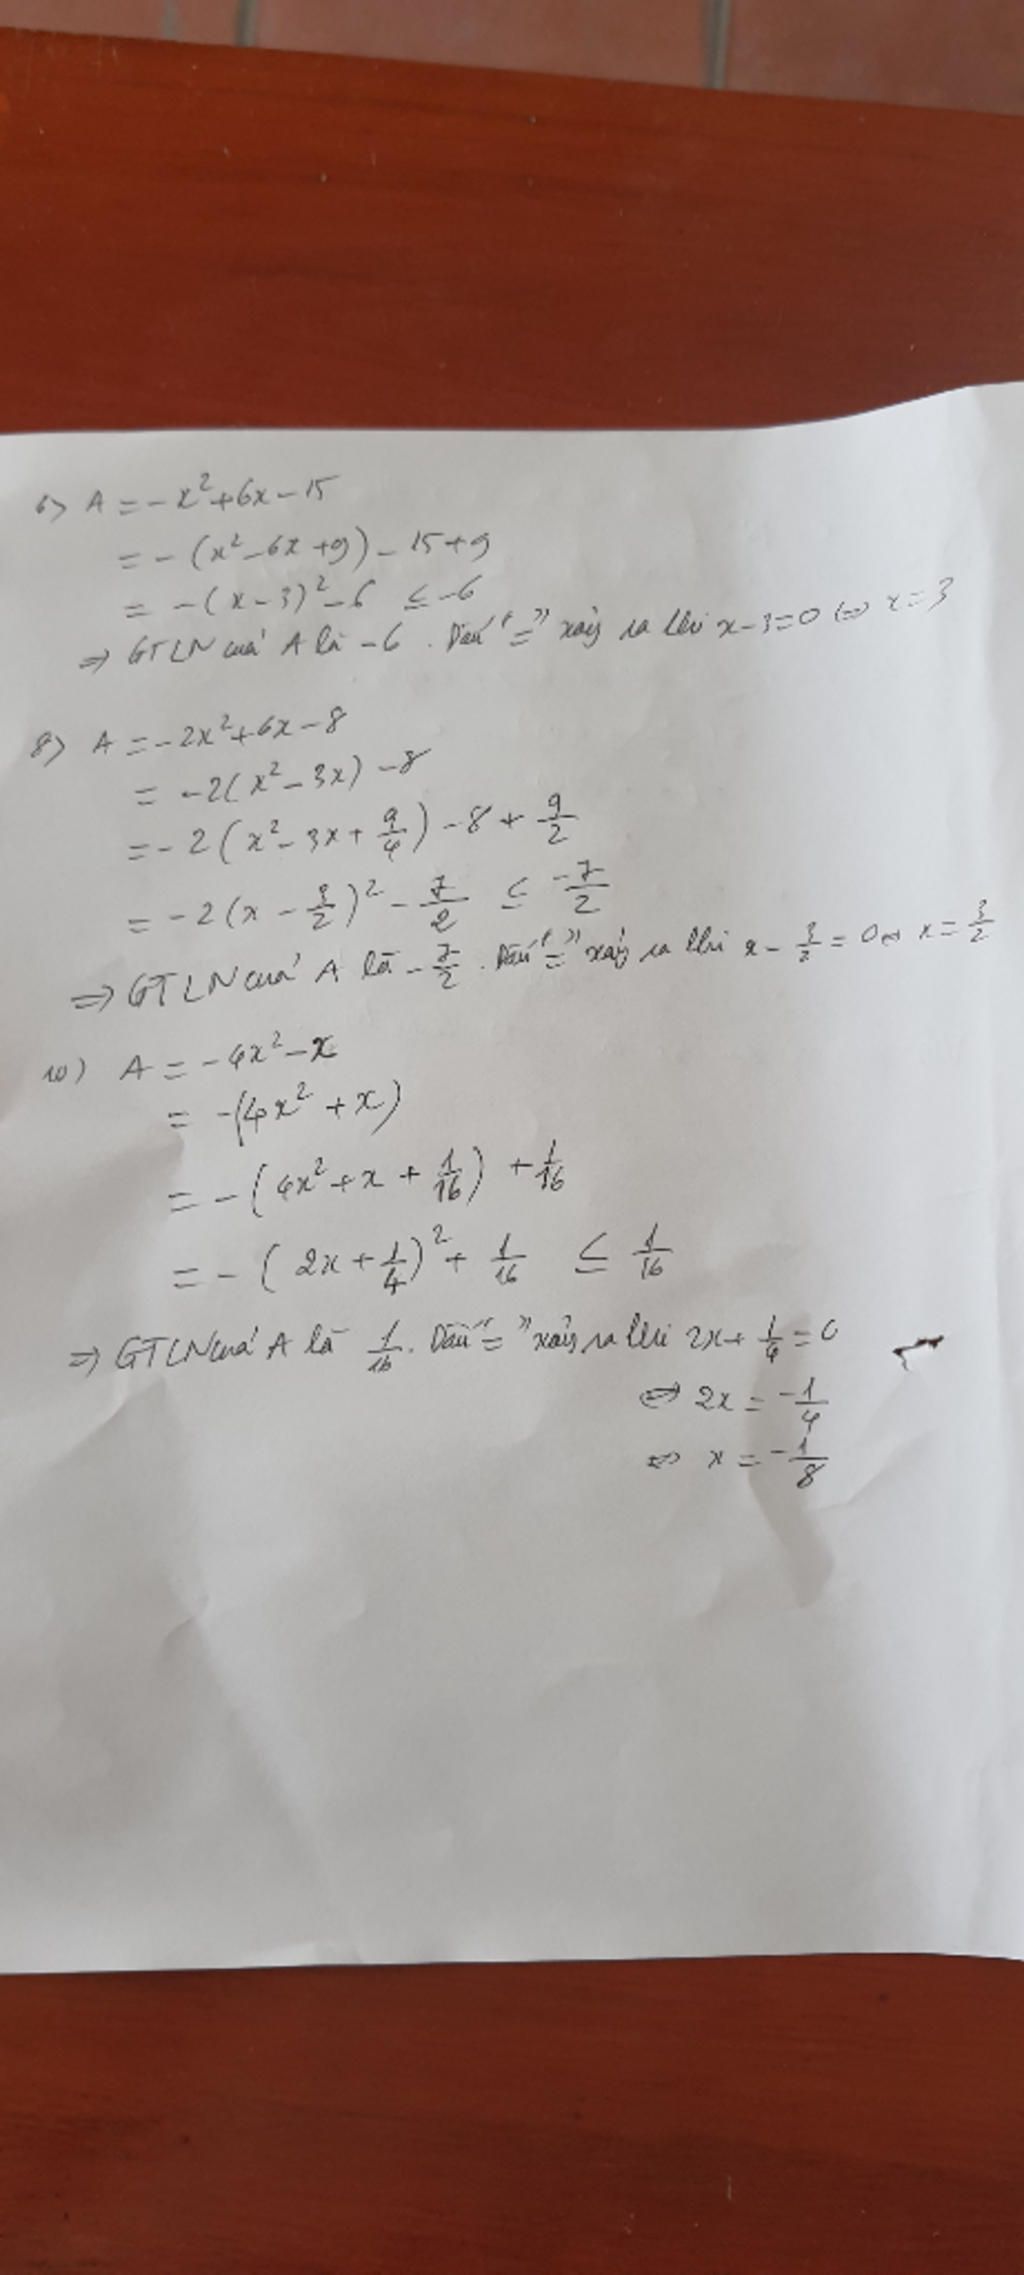 6) A = -x² + 6x - 15
= - (x² - 6x + 9) - 15 + 9
= - (x - 3)² - 6 ≤ -6
⇒ GTLN của A là -6. Dấu "=" xảy ra khi x - 3 = 0 ⇔ x = 3
8) A = -2x² + 6x - 8
= -2(x² - 3x) - 8
= -2(x² - 3x + 9/4) - 8 + 9/2
= -2(x - 3/2)² - 7/2 ≤ -7/2
⇒ GTLN của A là -7/2. Dấu "=" xảy ra khi x - 3/2 = 0 ⇔ x = 3/2
10) A = -4x² - x
= -(4x² + x)
= -(4x² + x + 1/16) + 1/16
= -(2x + 1/4)² + 1/16 ≤ 1/16
⇒ GTLN của A là 1/16. Dấu "=" xảy ra khi 2x + 1/4 = 0
⇔ 2x = -1/4
⇔ x = -1/8